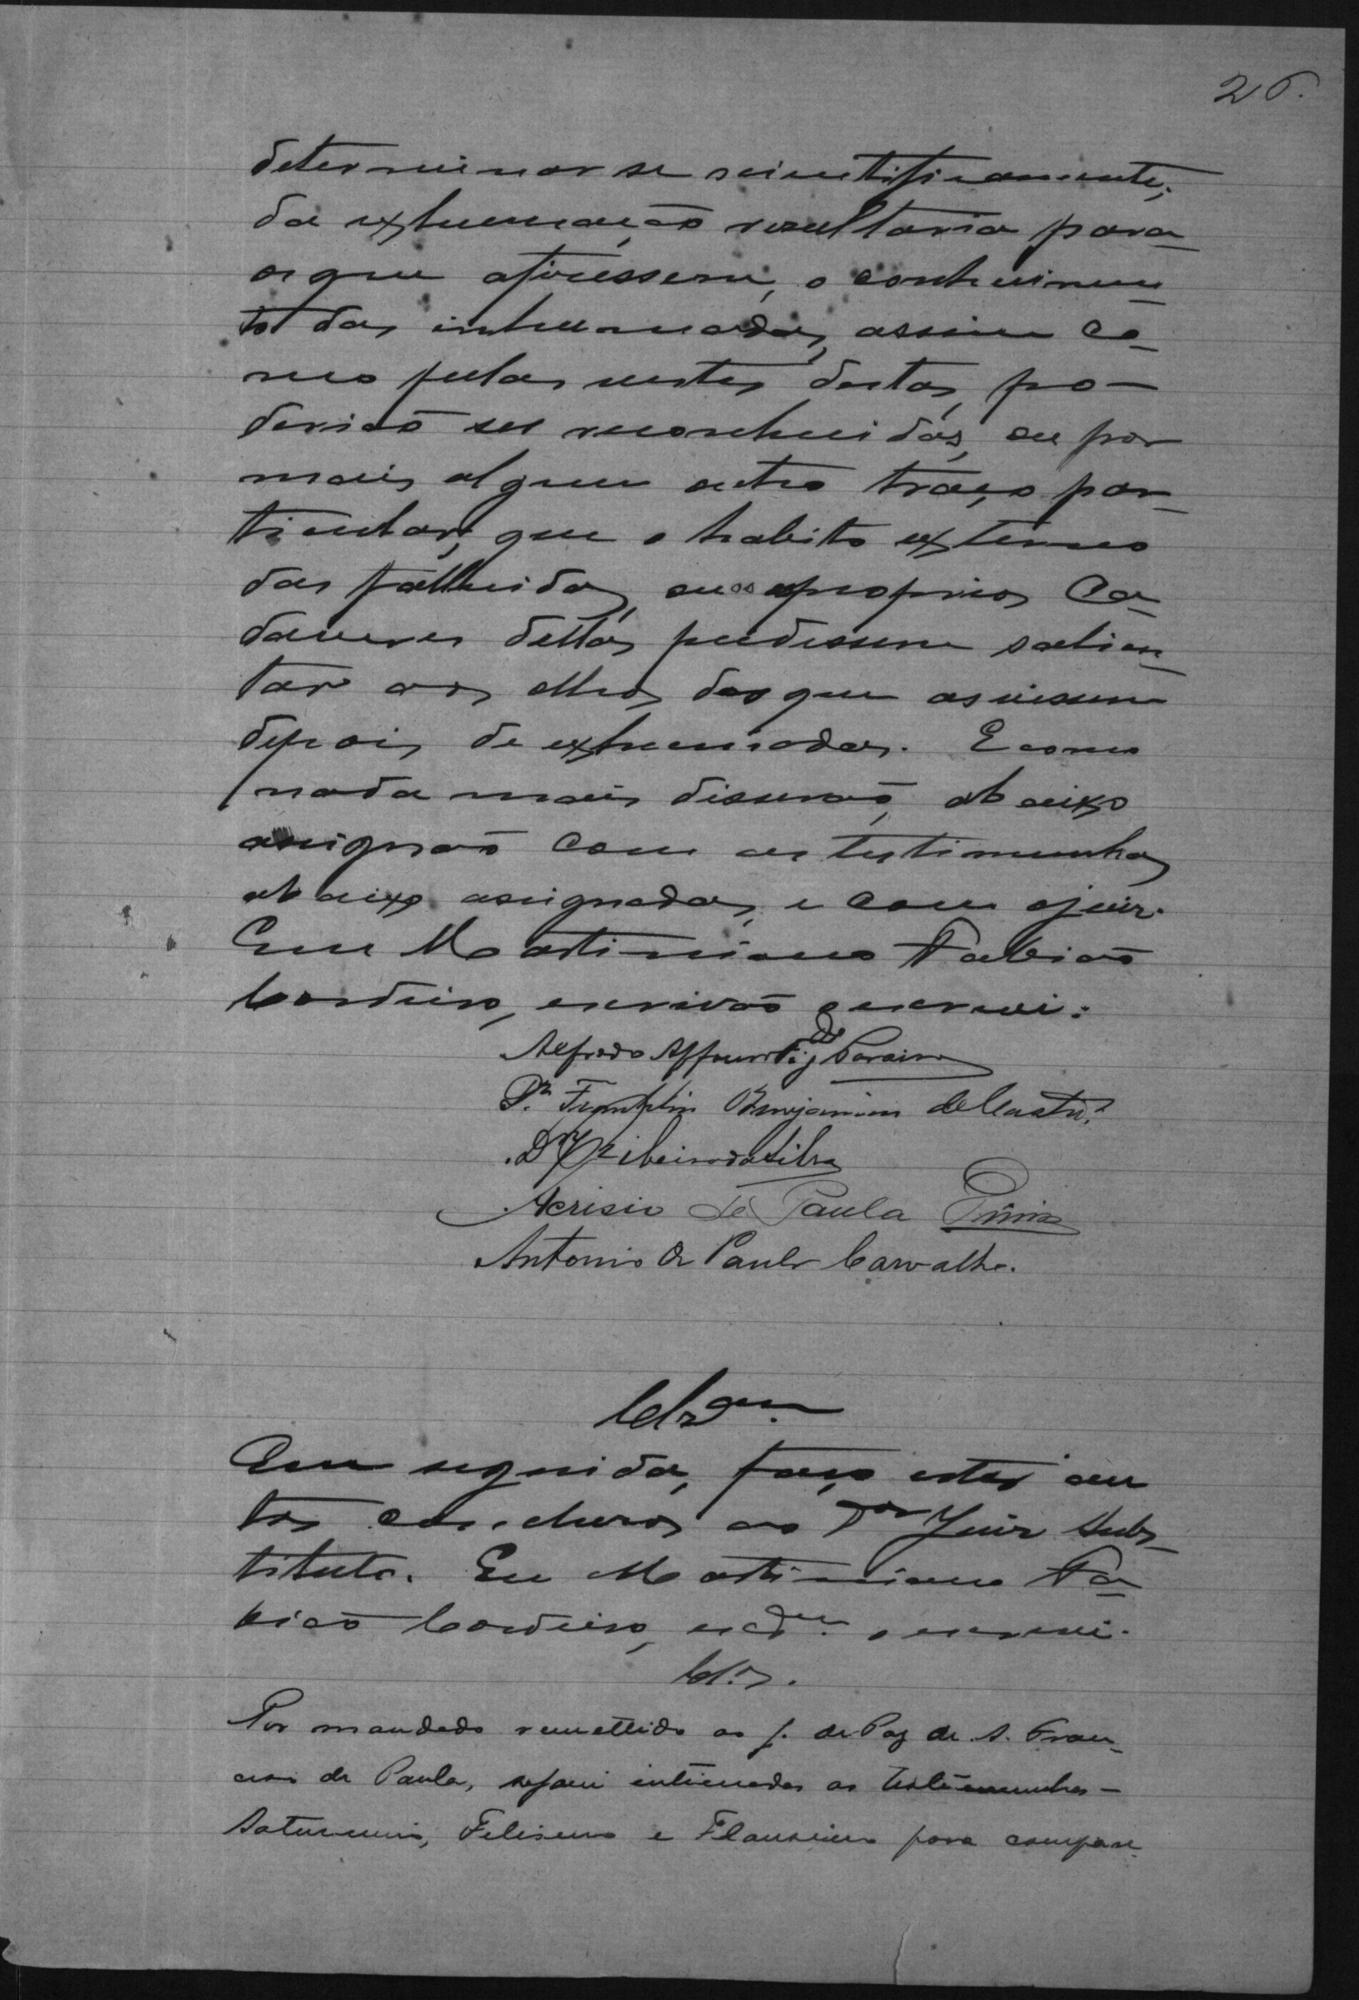 26.
determinar se scientificamente;
da exhumação resultaria para
os que afizessem, o conhecimen-
to das inhumadas, assim co-
mo pelas vestes destas, po-
derião ser reconhecidas, ou por
mais algum outro traço par-
ticular, que o habito externo
das fallecidas, ou os proprios Ca-
daveres dellas pudessem salien-
tar aos olhos dos que as vissem
depois de exhumadas. E como
nada mais disserão, abaixo
assignão com as testimunhas
abaixo assignadas, e com o juiz.
Eu Martiniano Fabião
Cordeiro, escrivão o escrevi.
Alfredo
Dr. Franklin Benjamim de Castro
Dr Ribeiro da Silva
Acrisio de Paula Diniz
Antonio de Paula Carvalho.
Clzam.
Em seguida, faço estes au
tos conclusos ao Dor Juiz Subs-
tituto. Eu Martiniano Fa-
bião Cordeiro, escam. o escrevi.
Clz.
Por mandado remettido ao J. de Paz de S. Fran-
cisco de Paula, sejam intimadas as testemunhas -
Saturnino, Felismino e Flausino para compare